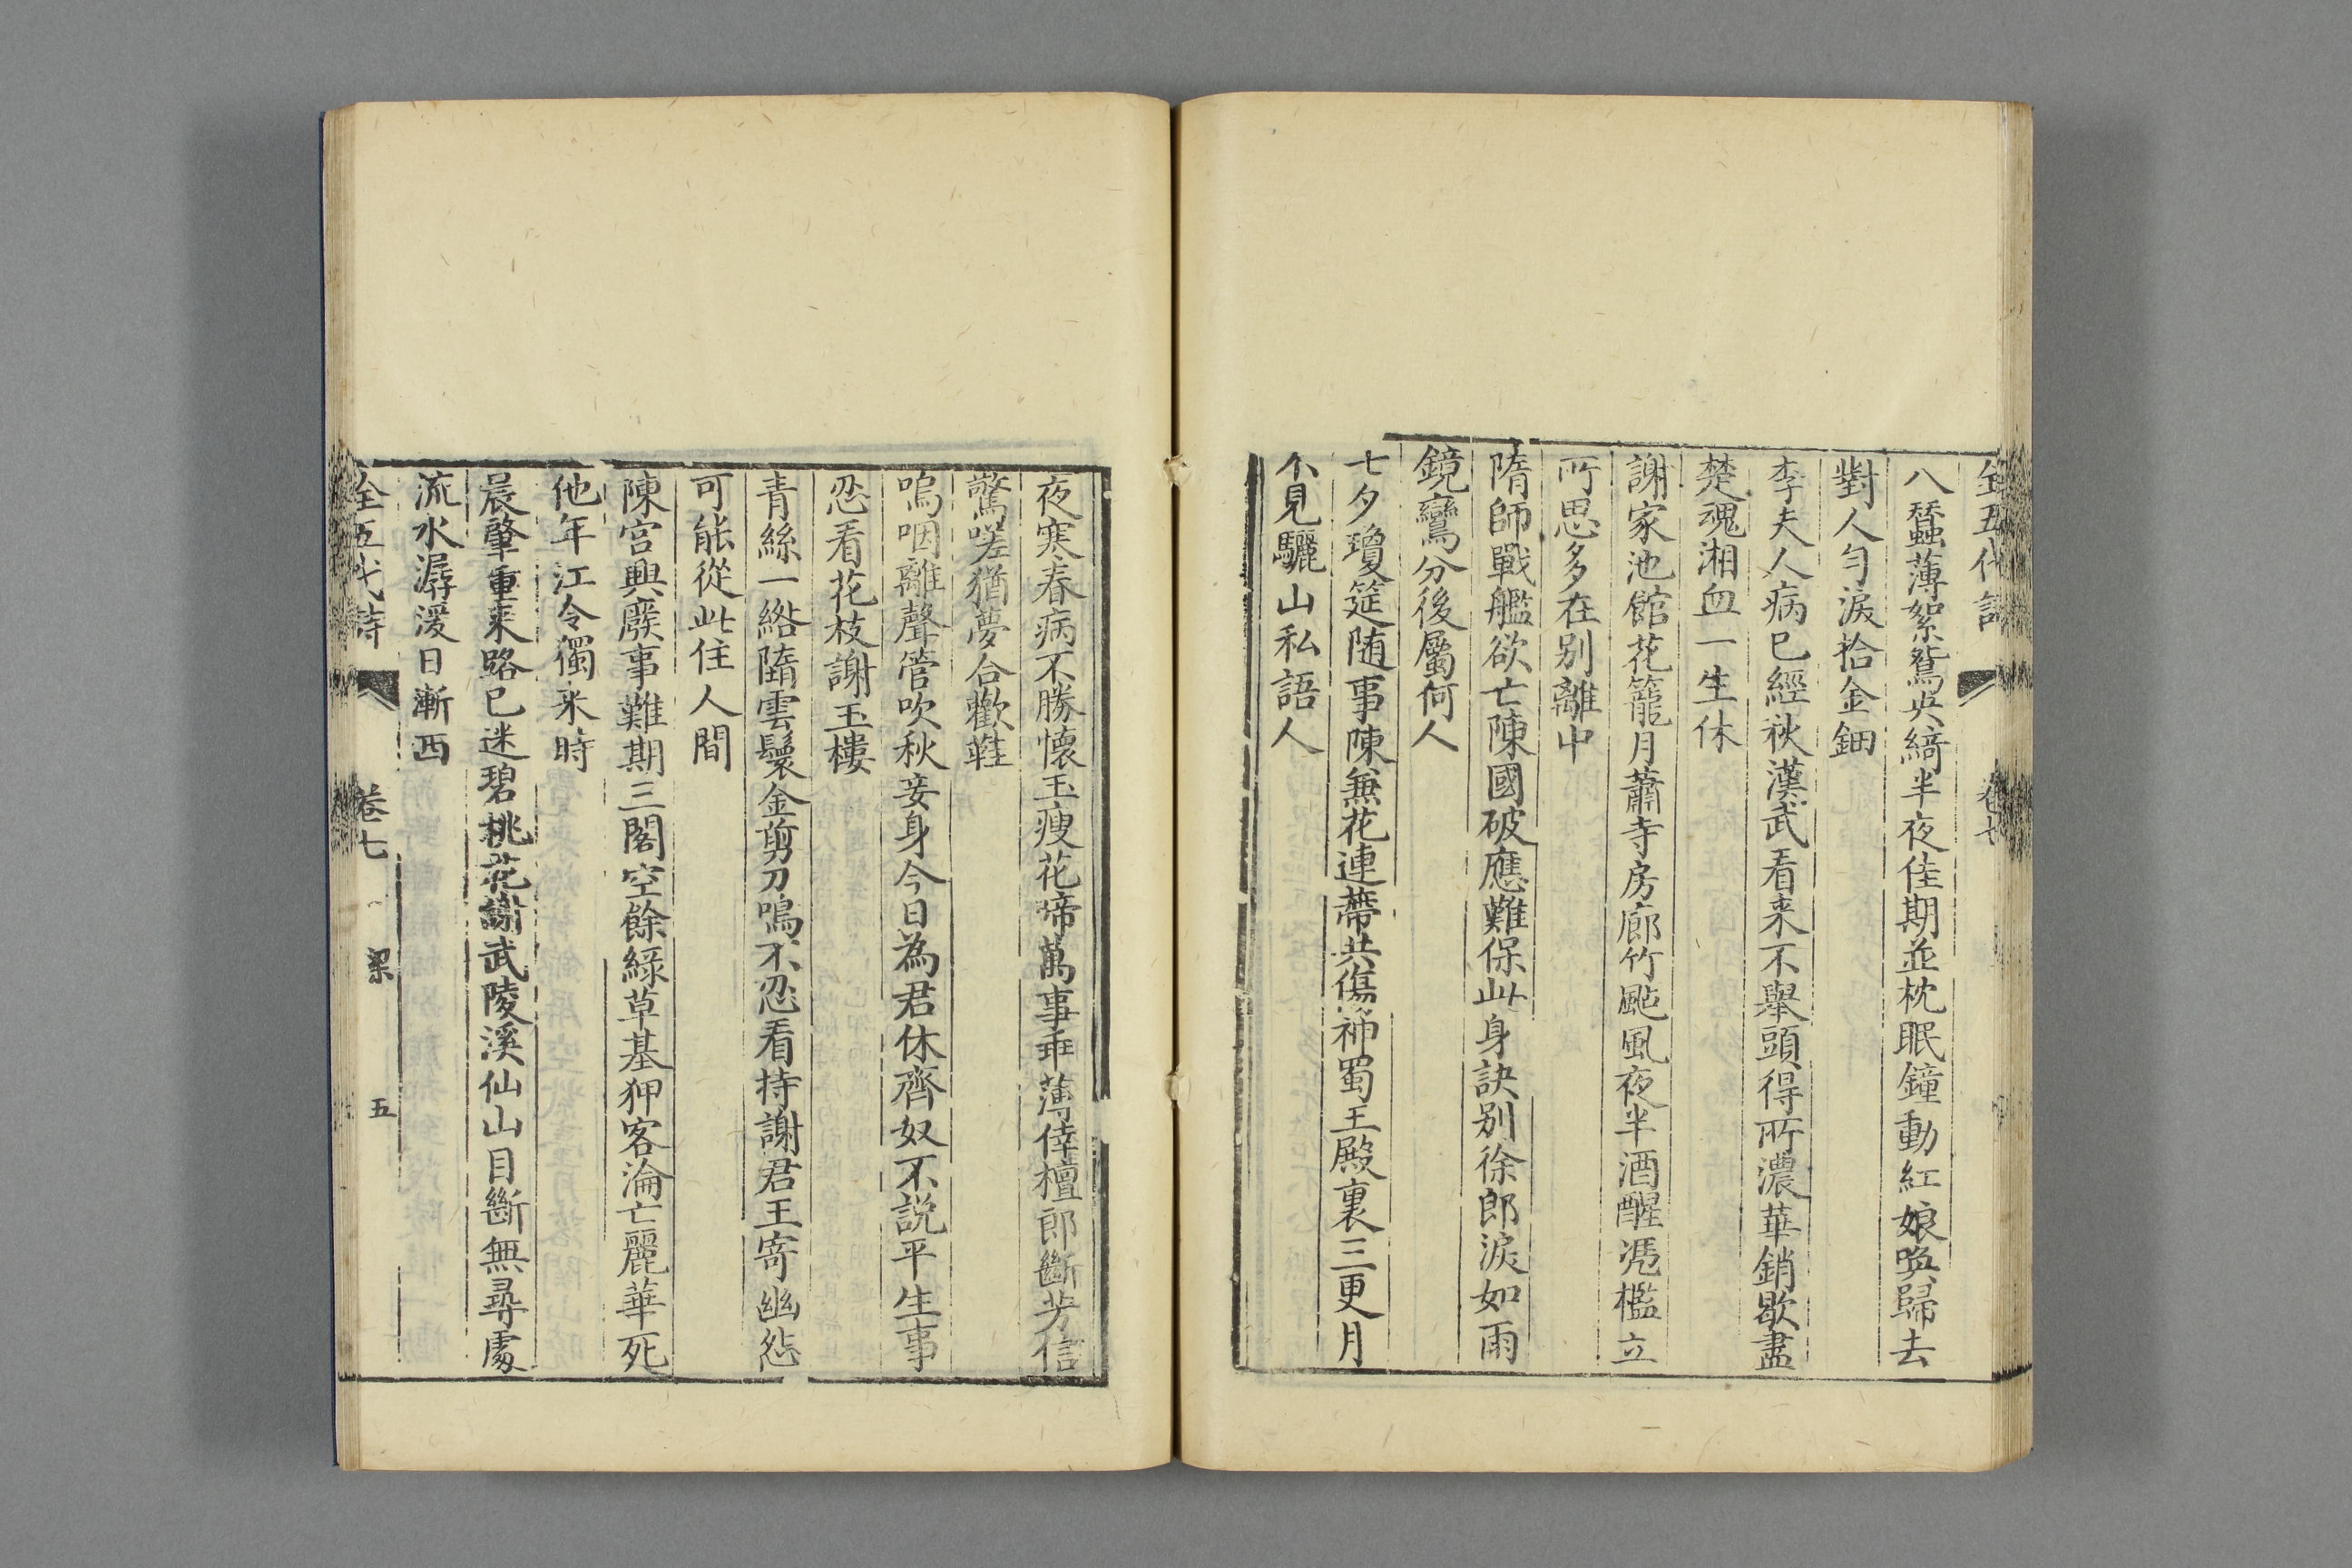 全五代詩 卷七
八蠶薄絮鴛鴦綺半夜佳期並枕眠鐘動紅娘喚歸去
對人勻淚拾金鈿
李夫人病已經秋漢武看来不舉頭得所濃華銷歇盡
楚魂湘血一生休
謝家池館花籠月蕭寺房廊竹颭風夜半酒醒凴檻立
所思多在别離中
隋師戰艦欲亡陳國破應難保此身訣别徐郎淚如雨
鏡鸞分後屬何人
七夕瓊筵随事陳兼花連蔕共傷神蜀王殿裏三更月
不見驪山私語人
夜寒春病不勝懷玉瘦花啼萬事乖薄倖檀郎斷芳信
驚嗟猶夢合歡鞋
嗚咽離聲管吹秋妾身今日為君休齊奴不説平生事
忍看花枝謝玉樓
青絲一綹墮雲鬟金剪刀鳴不忍看持謝君王寄幽怨
可能從此住人間
陳宫興廢事難期三閣空餘綠草基狎客淪亡麗華死
他年江令獨来時
晨肇重来路已迷碧桃花謝武陵溪仙山目斷無尋處
流水潺湲日漸西
全五代詩 卷七 梁 五